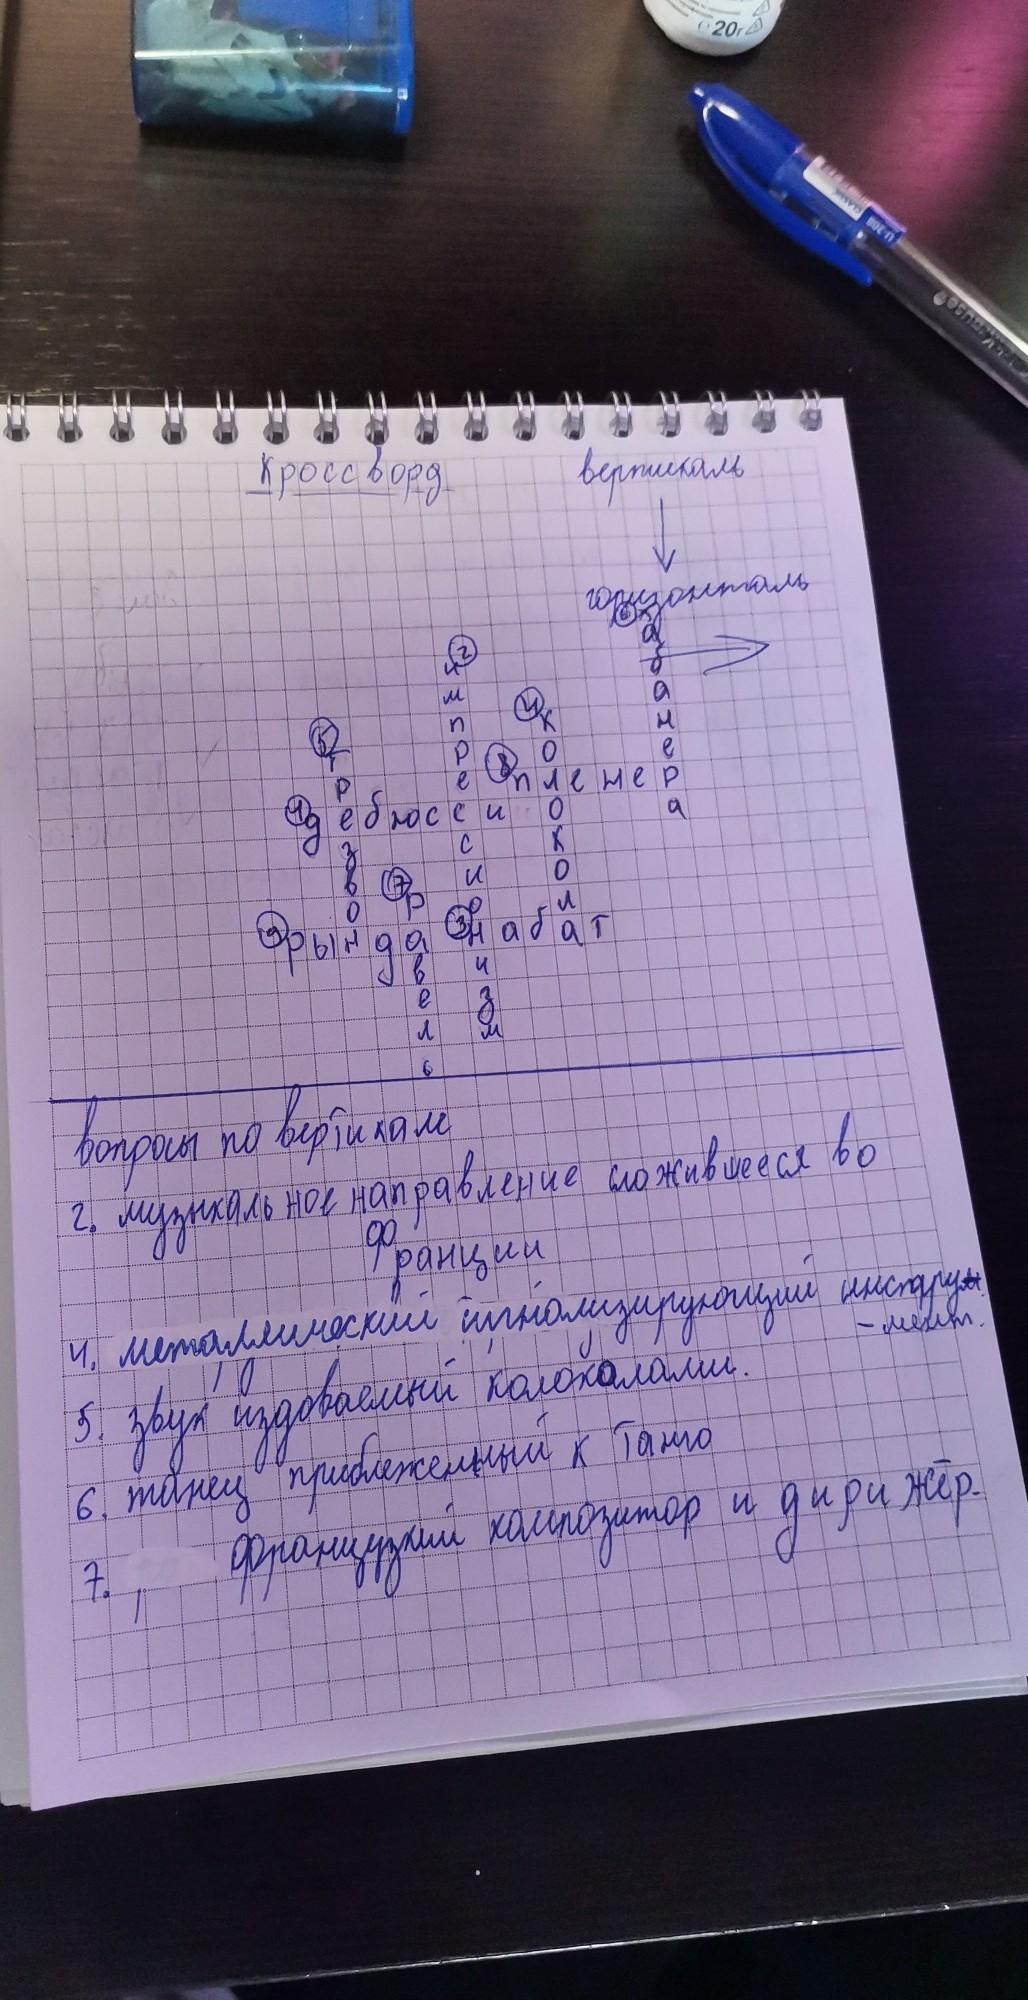 20г
U-208
CLASSIC
Кроссворд
вертикаль
горизонталь
2 импрессионизм
4 колокол
5 трезвон
6 хабанера
7 равель
1 дебюсси
8 пленер
9 рында
3 набат
вопросы по вертикале
2. музыкальное направление сложившееся во
Франции
4. металлический сигнолизирующий инстру
-мент.
5. звук издоваемый колоколами.
6. танец приближенный к Танго
7. французкий композитор и дирижёр.